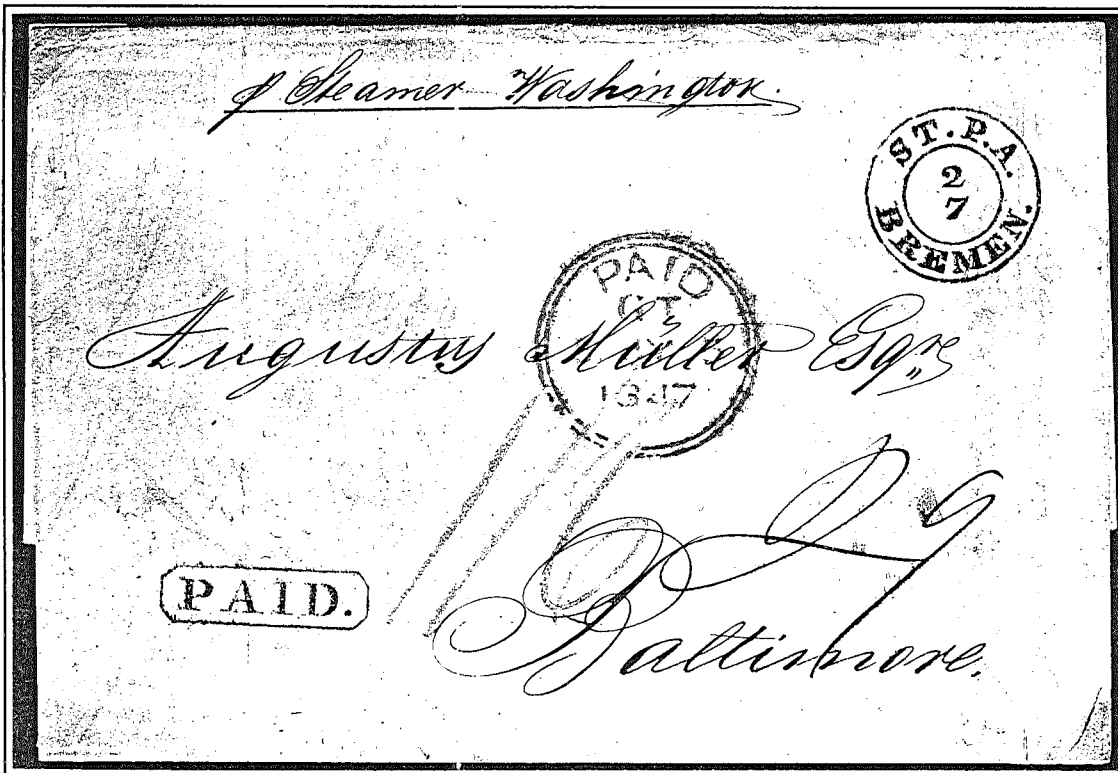 p Steamer Washington.
ST. P. A.
2
7
BREMEN.
PAID
1847
Augustus Müller Esqre
PAID.
Baltimore.